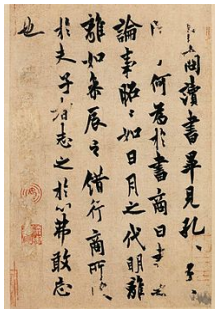 商讀書畢見孔〻子〻
何為於書商曰書之
論事昭〻如日月之代明離
〻如參辰之錯行商所受
於夫子者志之於心弗敢忘
也